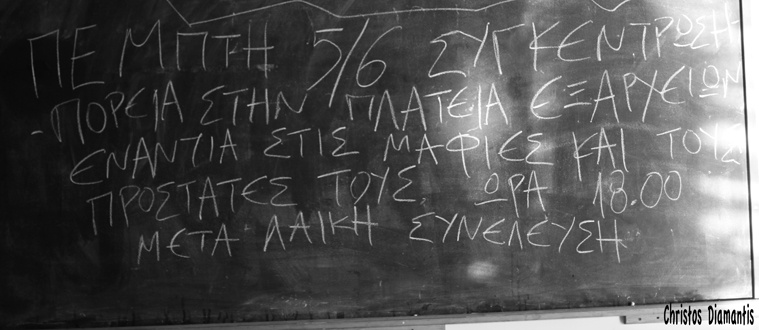 ΠΕΜΠΤΗ 5/6 ΣΥΓΚΕΝΤΡΩΣΗ
- ΠΟΡΕΙΑ ΣΤΗΝ ΠΛΑΤΕΙΑ ΕΞΑΡΧΕΙΩΝ
ΕΝΑΝΤΙΑ ΣΤΙΣ ΜΑΦΙΕΣ ΚΑΙ ΤΟΥΣ
ΠΡΟΣΤΑΤΕΣ ΤΟΥΣ. ΩΡΑ 18.00
ΜΕΤΑ ΛΑΙΚΗ ΣΥΝΕΛΕΥΣΗ
Christos Diamantis